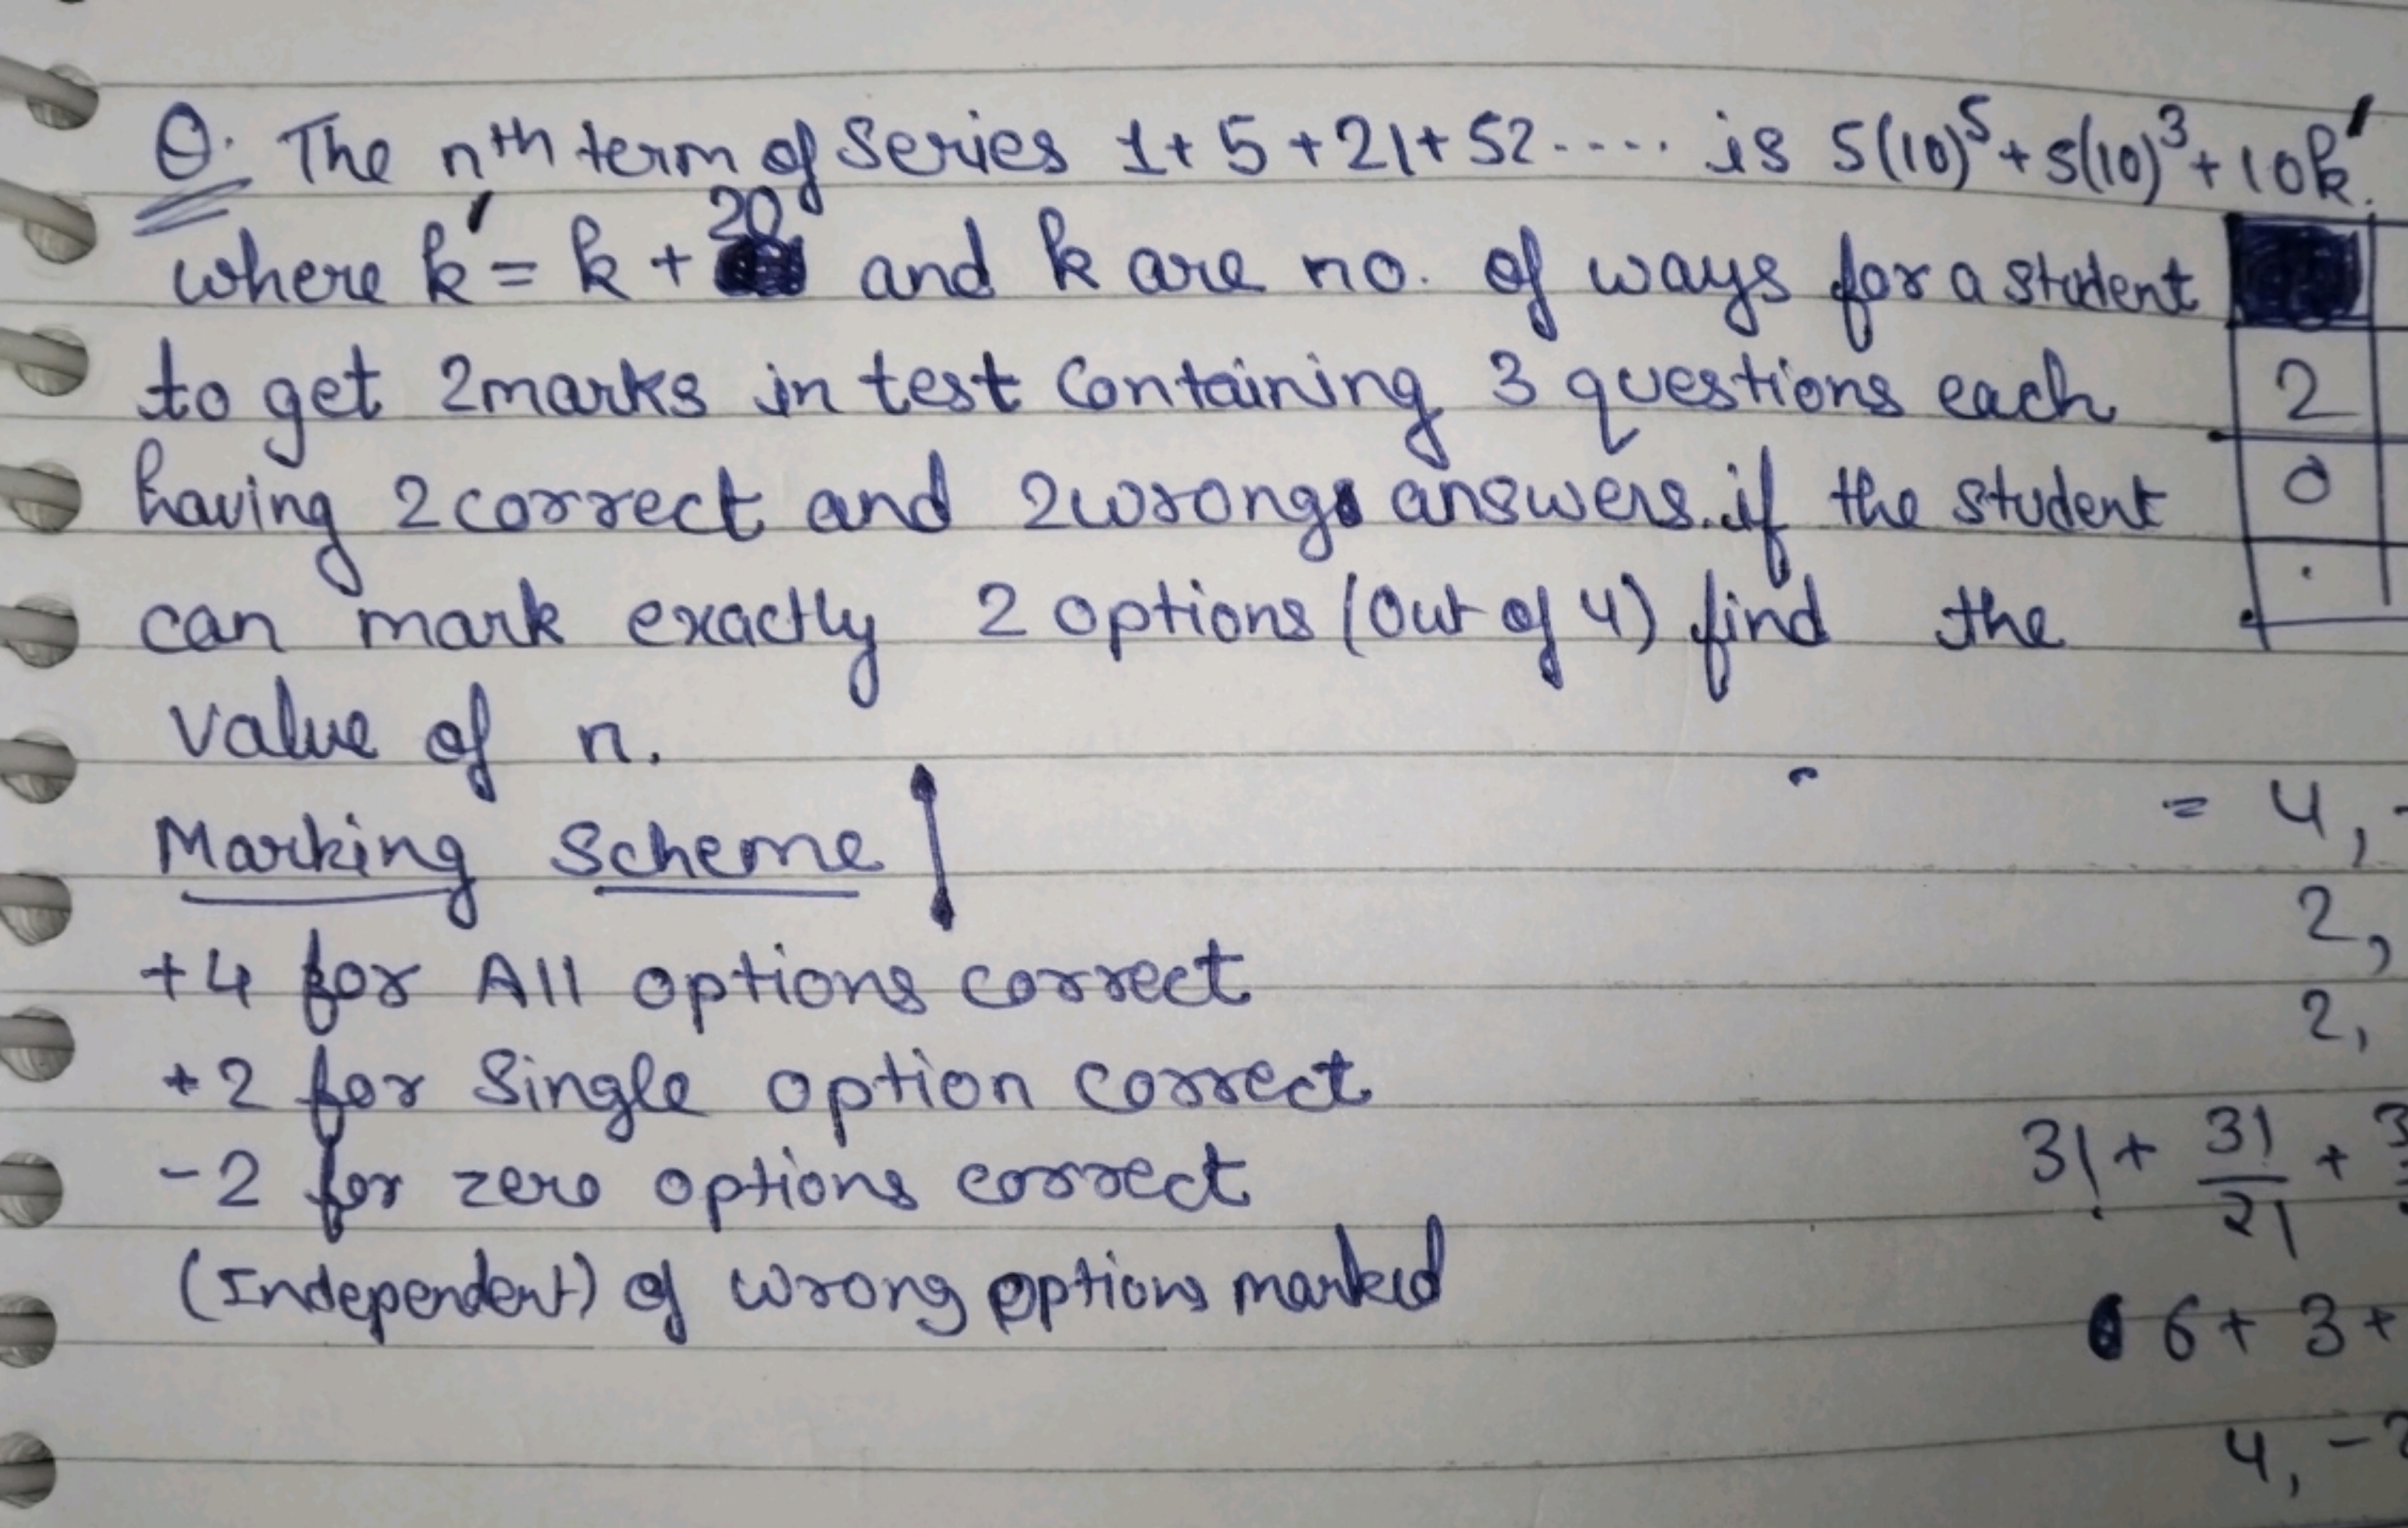 Q. The nth term of Series 1+5+21+52..... is 5(10)^5+5(10)^3+10k'.
where k' = k + 20 and k are no. of ways for a student
to get 2marks in test Containing 3 questions each
having 2 correct and 2wrong answers. if the student
2
0
can mark exactly 2 options (Out of 4) find the
value of n.
= 4,
Marking Scheme
2,
+4 for All options correct
2,
+2 for Single option Correct
3! + 3!/2! +
-2 for zero options correct
(Independent) of wrong options marked
6 + 3 +
4, -2